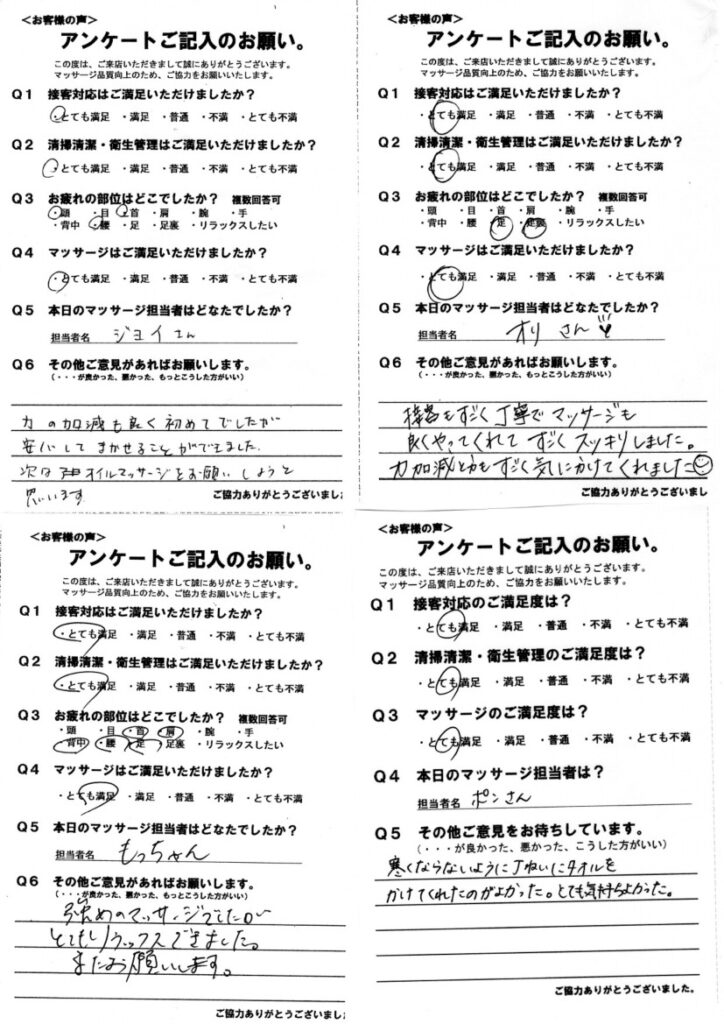 <お客様の声>
アンケートご記入のお願い。
この度は、ご来店いただきまして誠にありがとうございます。
マッサージ品質向上のため、ご協力をお願いいたします。
Q1 接客対応はご満足いただけましたか?
・とても満足 ・満足 ・普通 ・不満 ・とても不満
Q2 清掃清潔・衛生管理はご満足いただけましたか?
・とても満足 ・満足 ・普通 ・不満 ・とても不満
Q3 お疲れの部位はどこでしたか? 複数回答可
・頭 ・目 ・首 ・肩 ・腕 ・手
・背中 ・腰 ・足 ・足裏 ・リラックスしたい
Q4 マッサージはご満足いただけましたか?
・とても満足 ・満足 ・普通 ・不満 ・とても不満
Q5 本日のマッサージ担当者はどなたでしたか?
担当者名 ジョイさん
Q6 その他ご意見があればお願いします。
(・・・が良かった、悪かった、もっとこうした方がいい)
力の加減も良く初めてでしたが
安心してまかせることができました.
次は オイルマッサージをお願いしようと
思います
ご協力ありがとうございまし
<お客様の声>
アンケートご記入のお願い。
この度は、ご来店いただきまして誠にありがとうございます。
マッサージ品質向上のため、ご協力をお願いいたします。
Q1 接客対応はご満足いただけましたか?
・とても満足 ・満足 ・普通 ・不満 ・とても不満
Q2 清掃清潔・衛生管理はご満足いただけましたか?
・とても満足 ・満足 ・普通 ・不満 ・とても不満
Q3 お疲れの部位はどこでしたか? 複数回答可
・頭 ・目 ・首 ・肩 ・腕 ・手
・背中 ・腰 ・足 ・足裏 ・リラックスしたい
Q4 マッサージはご満足いただけましたか?
・とても満足 ・満足 ・普通 ・不満 ・とても不満
Q5 本日のマッサージ担当者はどなたでしたか?
担当者名 オリさん
Q6 その他ご意見があればお願いします。
(・・・が良かった、悪かった、もっとこうした方がいい)
接客もすごく丁寧でマッサージも
良くやってくれてすごくスッキリしました。
力加減とかもすごく気にかけてくれました
ご協力ありがとうございまし
<お客様の声>
アンケートご記入のお願い。
この度は、ご来店いただきまして誠にありがとうございます。
マッサージ品質向上のため、ご協力をお願いいたします。
Q1 接客対応はご満足いただけましたか?
・とても満足 ・満足 ・普通 ・不満 ・とても不満
Q2 清掃清潔・衛生管理はご満足いただけましたか?
・とても満足 ・満足 ・普通 ・不満 ・とても不満
Q3 お疲れの部位はどこでしたか? 複数回答可
・頭 ・目 ・首 ・肩 ・腕 ・手
・背中 ・腰 ・足 ・足裏 ・リラックスしたい
Q4 マッサージはご満足いただけましたか?
・とても満足 ・満足 ・普通 ・不満 ・とても不満
Q5 本日のマッサージ担当者はどなたでしたか?
担当者名 もっちゃん
Q6 その他ご意見があればお願いします。
(・・・が良かった、悪かった、もっとこうした方がいい)
強めのマッサージでしたが
とてもリラックスできました。
またお願いします。
ご協力ありがとうございまし
<お客様の声>
アンケートご記入のお願い。
この度は、ご来店いただきまして誠にありがとうございます。
マッサージ品質向上のため、ご協力をお願いいたします。
Q1 接客対応のご満足度は?
・とても満足 ・満足 ・普通 ・不満 ・とても不満
Q2 清掃清潔・衛生管理のご満足度は?
・とても満足 ・満足 ・普通 ・不満 ・とても不満
Q3 マッサージのご満足度は?
・とても満足 ・満足 ・普通 ・不満 ・とても不満
Q4 本日のマッサージ担当者は?
担当者名 ポンさん
Q5 その他ご意見をお待ちしています。
(・・・が良かった、悪かった、こうした方がいい)
寒くならないように丁ねいにタオルを
かけてくれたのがよかった。とても気持ちよかった。
ご協力ありがとうございました。